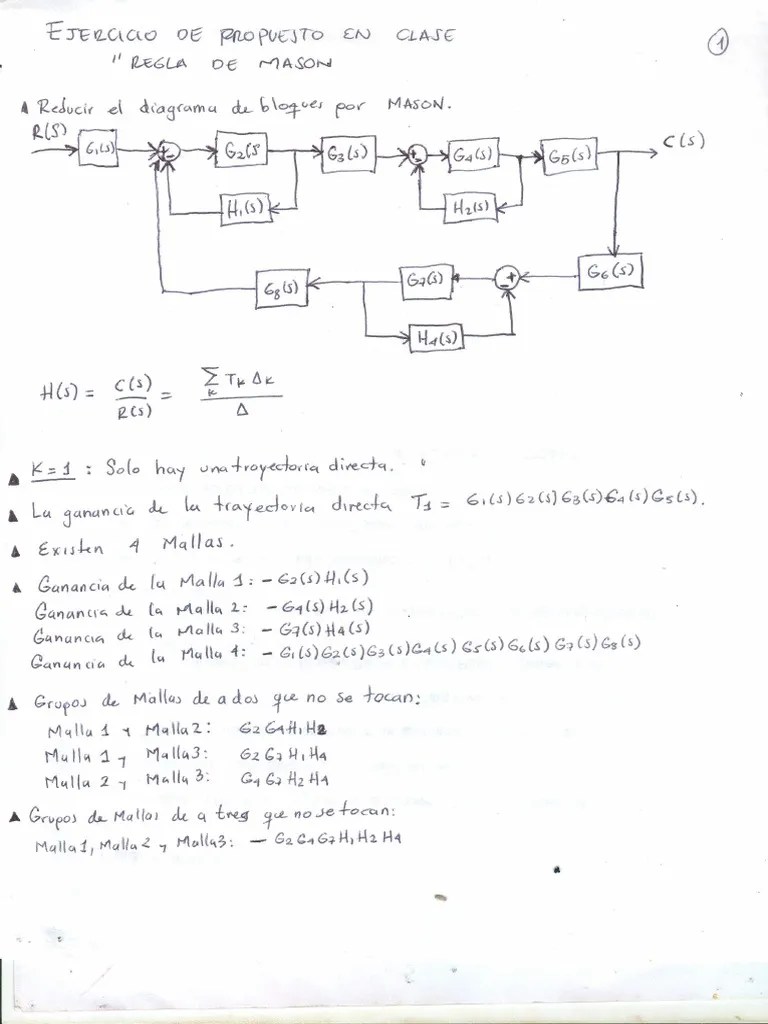 EJERCICIO DE PROPUESTO EN CLASE
" REGLA DE MASON
1
Reducir el diagrama de bloques por MASON.
R(S) G1(s) + - G2(s G3(s) + - G4(s) G5(s) C(s)
H1(s) H2(s)
G8(s) G7(s) - + G6(s)
H4(s)
H(s) = C(s) / R(s) = Σ K TK ΔK / Δ
K=1 : Solo hay una trayectoria directa.
La ganancia de la trayectoria directa T1 = G1(s)G2(s)G3(s)G4(s)G5(s).
Existen 4 Mallas.
Ganancia de la Malla 1: - G2(s)H1(s)
Ganancia de la Malla 2: - G4(s)H2(s)
Ganancia de la Malla 3: - G7(s)H4(s)
Ganancia de la Malla 4: - G1(s)G2(s)G3(s)G4(s)G5(s)G6(s)G7(s)G8(s)
Grupos de Mallas de a dos que no se tocan:
Malla 1 y Malla 2: G2G4H1H2
Malla 1 y Malla3: G2G7H1H4
Malla 2 y Malla 3: G4G7H2H4
Grupos de Mallas de a tres que no se tocan:
Malla 1, Malla 2 y Malla3: - G2G4G7H1H2H4